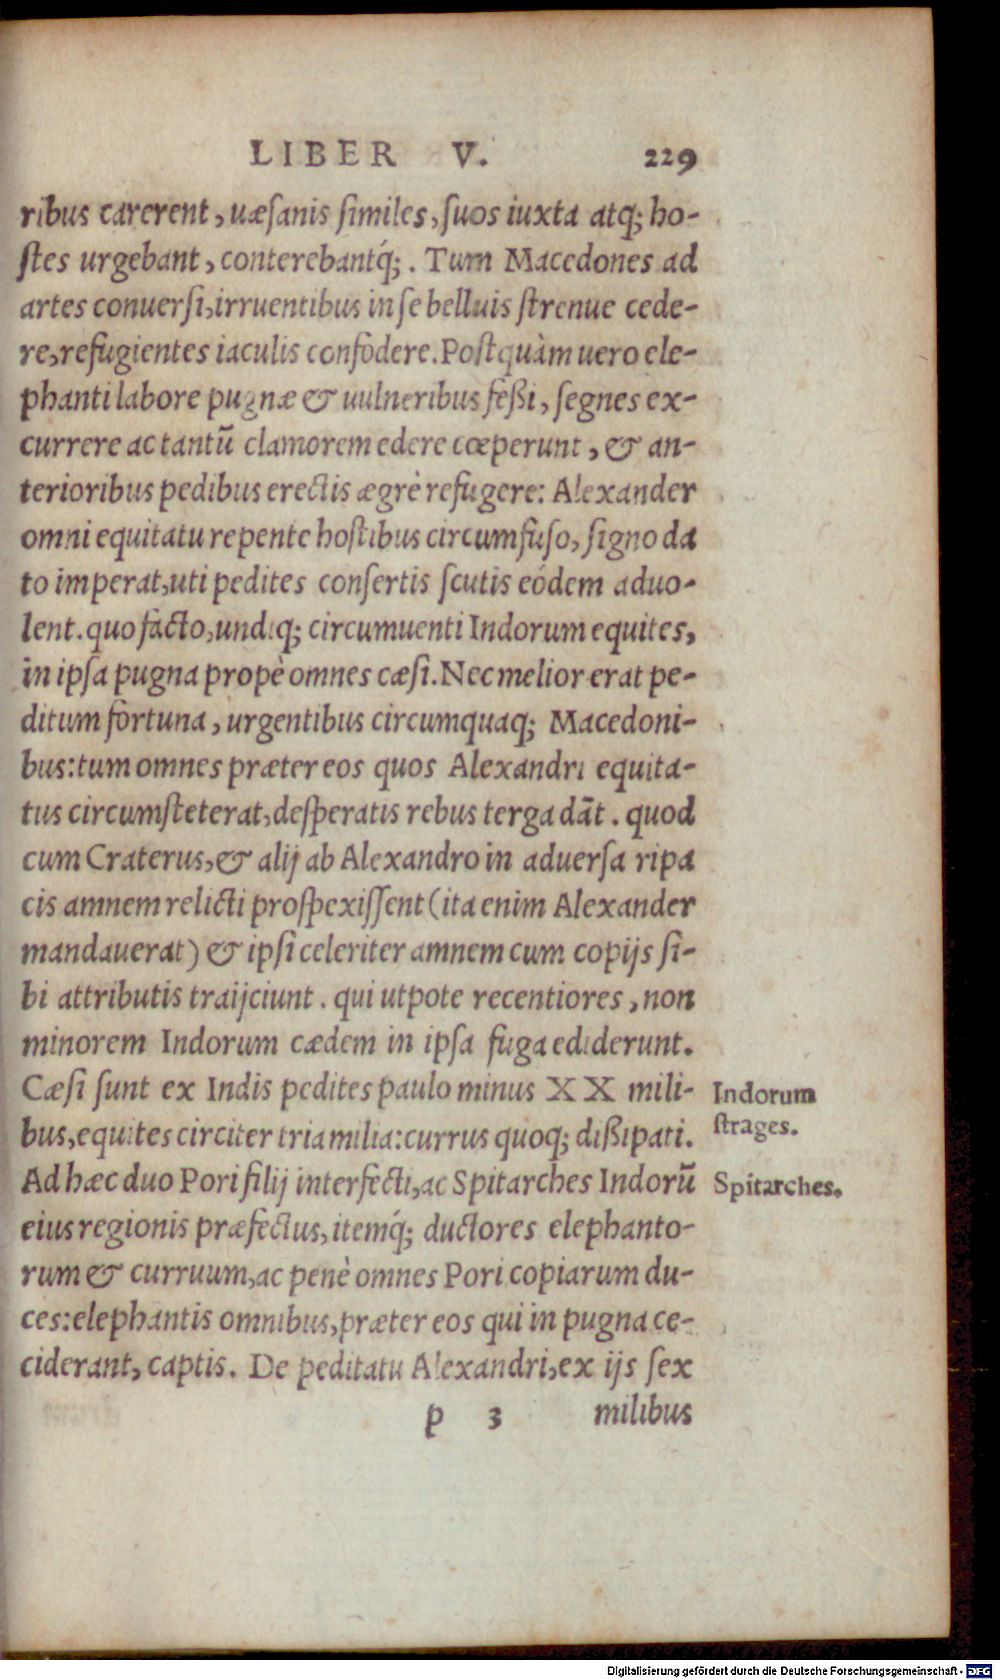 LIBER V. 229
ribus carerent, uæsanis similes, suos iuxta atq; ho-
stes urgebant, conterebantq́;. Tum Macedones ad
artes conuersi, irruentibus in se belluis strenue cede-
re, refugientes iaculis confodere. Postquàm uero ele-
phanti labore pugnæ & uulneribus feßi, segnes ex-
currere ac tantũ clamorem edere cœperunt, & an-
terioribus pedibus erectis ægrè refugere: Alexander
omni equitatu repente hostibus circumfuso, signo da
to imperat, uti pedites consertis scutis eódem aduo-
lent. quo facto, undiq; circumuenti Indorum equites,
in ipsa pugna propè omnes cæsi. Nec melior erat pe-
ditum fortuna, urgentibus circumquaq; Macedoni-
bus: tum omnes præter eos quos Alexandri equita-
tus circumsteterat, desperatis rebus terga dãt. quod
cum Craterus, & alij ab Alexandro in aduersa ripa
cis amnem relicti prospexissent (ita enim Alexander
mandauerat) & ipsi celeriter amnem cum copijs si-
bi attributis traijciunt. qui utpote recentiores, non
minorem Indorum cædem in ipsa fuga ediderunt.
Cæsi sunt ex Indis pedites paulo minus XX mili-
bus, equites circiter tria milia: currus quoq; dißipati.
Ad hæc duo Pori filij interfecti, ac Spitarches Indorũ
eius regionis præfectus, itemq́; ductores elephanto-
rum & curruum, ac penè omnes Pori copiarum du-
ces: elephantis omnibus, præter eos qui in pugna ce-
ciderant, captis. De peditatu Alexandri, ex ijs sex
p 3 milibus
Indorum
strages.
Spitarches.
Digitalisierung gefördert durch die Deutsche Forschungsgemeinschaft - DFG